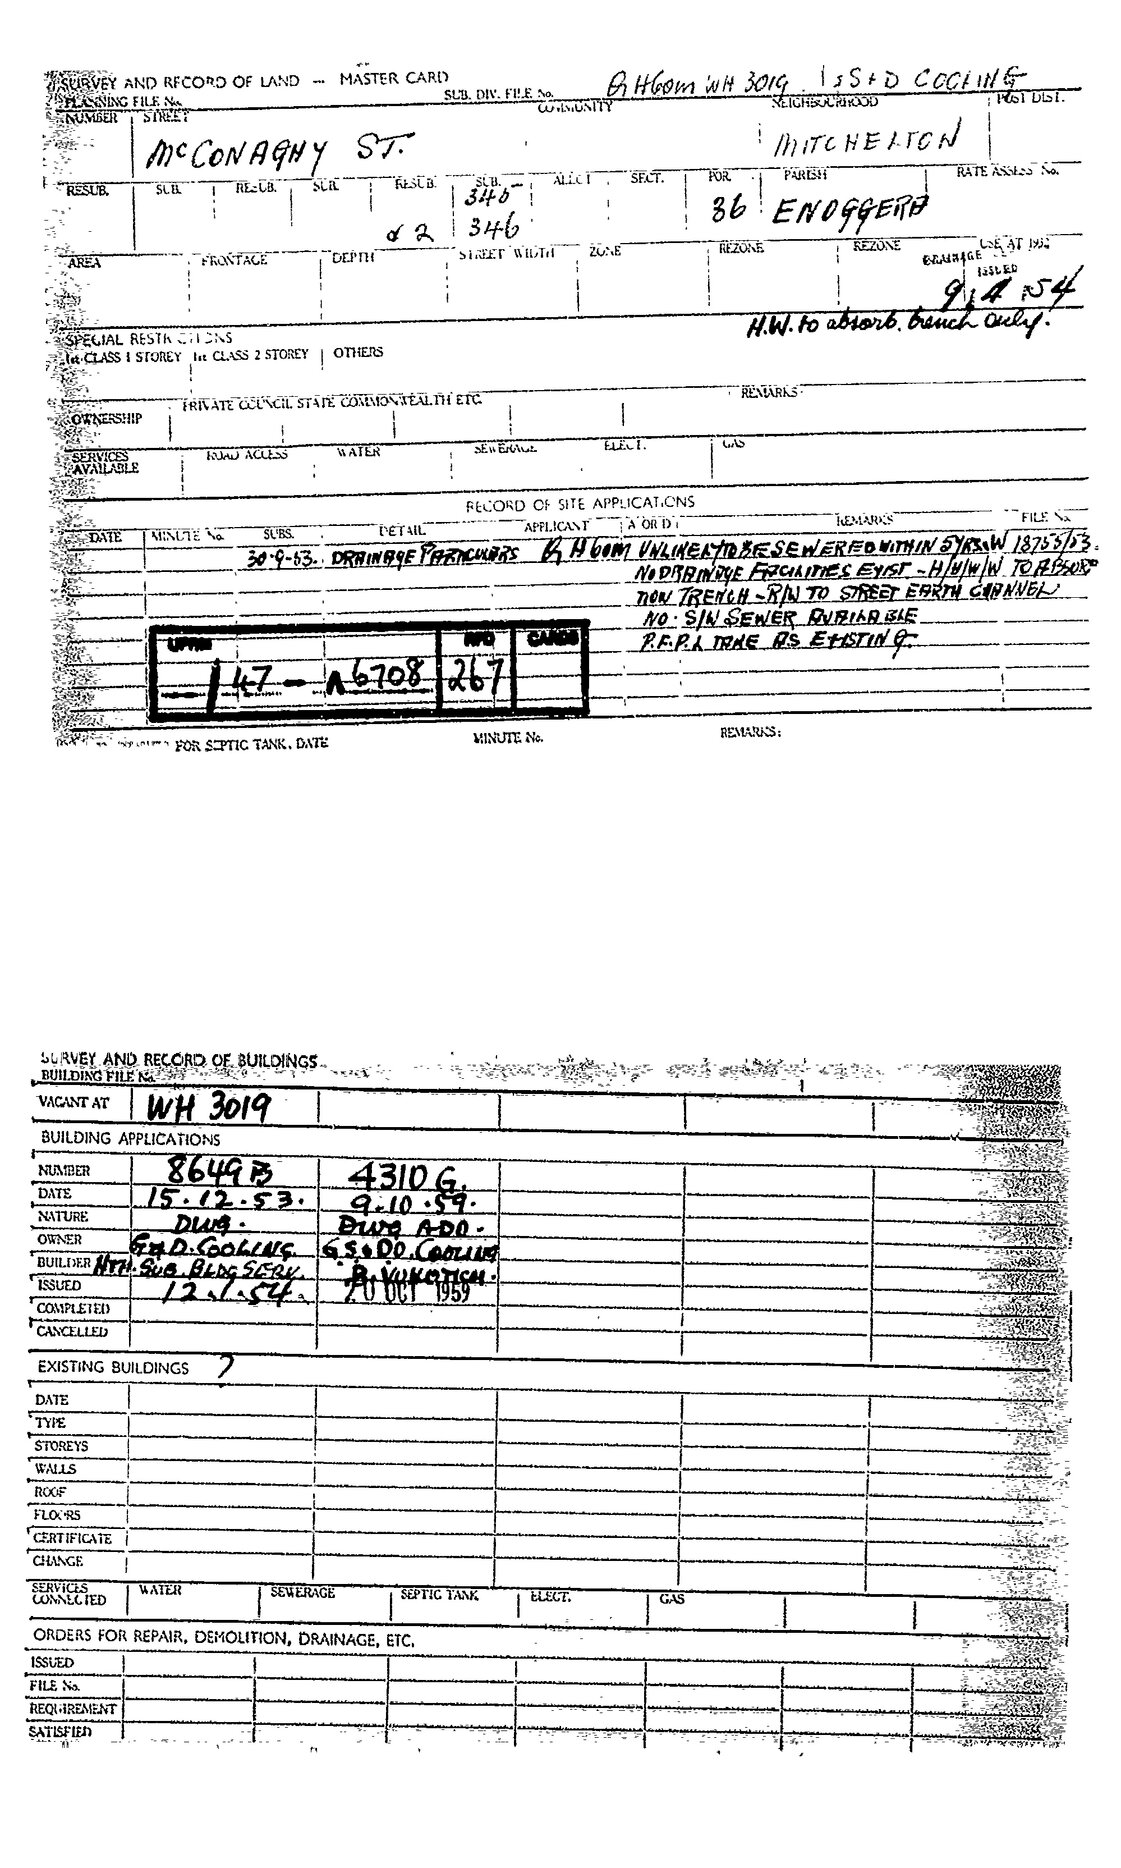 SURVEY AND RECORD OF LAND — MASTER CARD
PLANNING FILE No. SUB. DIV. FILE No. WH 3019 S & D COOLING
NUMBER STREET COMMUNITY NEIGHBOURHOOD POST DIST.
McCONAGHY ST. MITCHELTON
RESUB. SUB. RESUB. SUB. RESUB. SUB. ALLOT SECT. POR. PARISH RATE ASSESS No.
345
& 2 346 36 ENOGGERA
AREA FRONTAGE DEPTH STREET WIDTH ZONE REZONE REZONE USE AT 19
DRAINAGE
ISSUED
9.4.54
H.W. to absorb. trench only.
SPECIAL RESTRICTIONS
1st CLASS 1 STOREY 1st CLASS 2 STOREY OTHERS
OWNERSHIP PRIVATE COUNCIL STATE COMMONWEALTH ETC. REMARKS
SERVICES AVAILABLE ROAD ACCESS WATER SEWERAGE ELECT. GAS
RECORD OF SITE APPLICATIONS
DATE MINUTE No. SUBS. DETAIL APPLICANT A OR D REMARKS FILE No.
30-9-53. DRAINAGE PARTICULARS UNLIKELY TO BE SEWERED WITHIN 5 YRS. W 18755/53.
NO DRAINAGE FACILITIES EXIST - H/W/W/W TO ABSORP
TION TRENCH - R/W TO STREET EARTH CHANNEL
NO. S/W SEWER AVAILABLE
P.F.P.L TAKE AS EXISTING.
UPRN RPD CARDS
— / 47 — A6708 267
FOR SEPTIC TANK, DATE MINUTE No. REMARKS:
SURVEY AND RECORD OF BUILDINGS
BUILDING FILE No.
VACANT AT WH 3019
BUILDING APPLICATIONS
NUMBER 8649B 4310 G.
DATE 15.12.53. 9.10.59.
NATURE DWG. DWG ADD.
OWNER G & D. COOLING. G.S & D.D. COOLING
BUILDER NTH. SUB. BLDG SERV. B. VUKOTICH.
ISSUED 12.1.54. 20 OCT 1959
COMPLETED
CANCELLED
EXISTING BUILDINGS ?
DATE
TYPE
STOREYS
WALLS
ROOF
FLOORS
CERTIFICATE
CHANGE
SERVICES CONNECTED WATER SEWERAGE SEPTIC TANK ELECT. GAS
ORDERS FOR REPAIR, DEMOLITION, DRAINAGE, ETC.
ISSUED
FILE No.
REQUIREMENT
SATISFIED